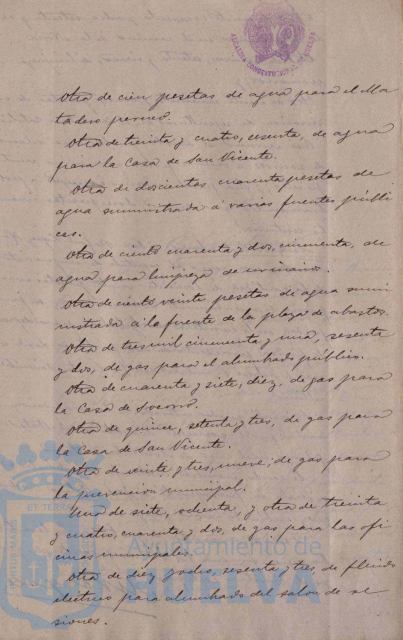 ALCALDIA CONSTITUCIONAL DE HUELVA
Otra de cien pesetas de agua para el Ma-
tadero permco.
Otra de treinta y cuatro, sesenta, de agua
para la Casa de San Vicente.
Otra de doscientas cuarenta pesetas de
agua suministrada á varias fuentes públi
cas.
Otra de ciento cuarenta y dos, cincuenta, de
agua para limpieza de urinarios.
Otra de ciento veinte pesetas de agua sumi
nistrada á la fuente de la plaza de abastos.
Otra de tres mil cincuenta y una, sesenta
y dos, de gas para el alumbrado público.
Otra de cuarenta y siete, diez, de gas para
la Casa de Socorro.
Otra de quince, setenta y tres, de gas para
la Casa de San Vicente.
Otra de veinte y tres, nueve, de gas para
la prevencion municipal.
Una de siete, ochenta, y otra de treinta
y cuatro, cuarenta y dos, de gas para las ofi
cinas municipales.
Otra de diez y ocho, sesenta y tres de fluido
electrico para alumbrado del salon de se
siones.
ET TERRAE
PORTUS MARIS
Ayuntamiento de
HUELVA